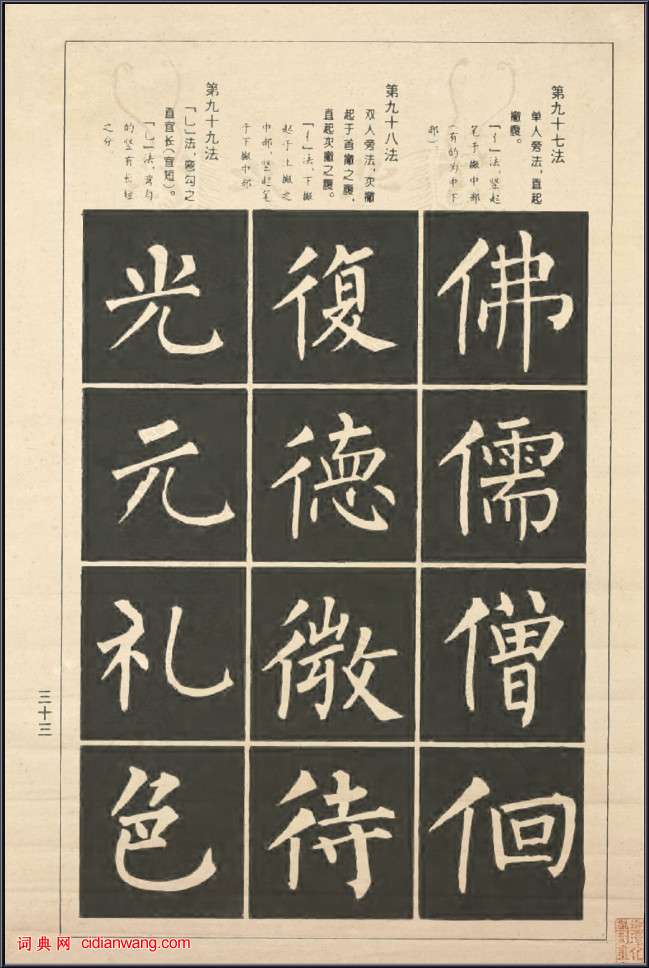 第九十七法
单人旁法，直起
撇腹。
「亻」法，竖起
笔于撇中部
（有的为中下
部）。
第九十八法
双人旁法，次撇
起于首撇之腹，
直起次撇之腹。
「彳」法，下撇
起于上撇之
中部，竖起笔
于下撇中部
第九十九法
「乚」法，弯勾之
直宜长（宜短）。
「乚」法，弯勾
的竖有长短
之分
佛
儒
僧
佪
復
德
微
待
光
元
礼
色
三十三
词典网 cidianwang.com